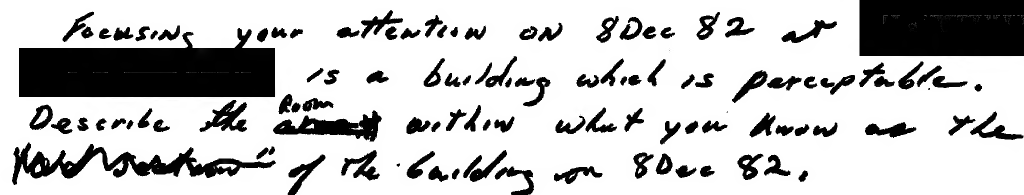 Focusing your attention on 8 Dec 82 at
is a building which is perceptable.
Describe the Room within what you know as the
of the building on 8 Dec 82.